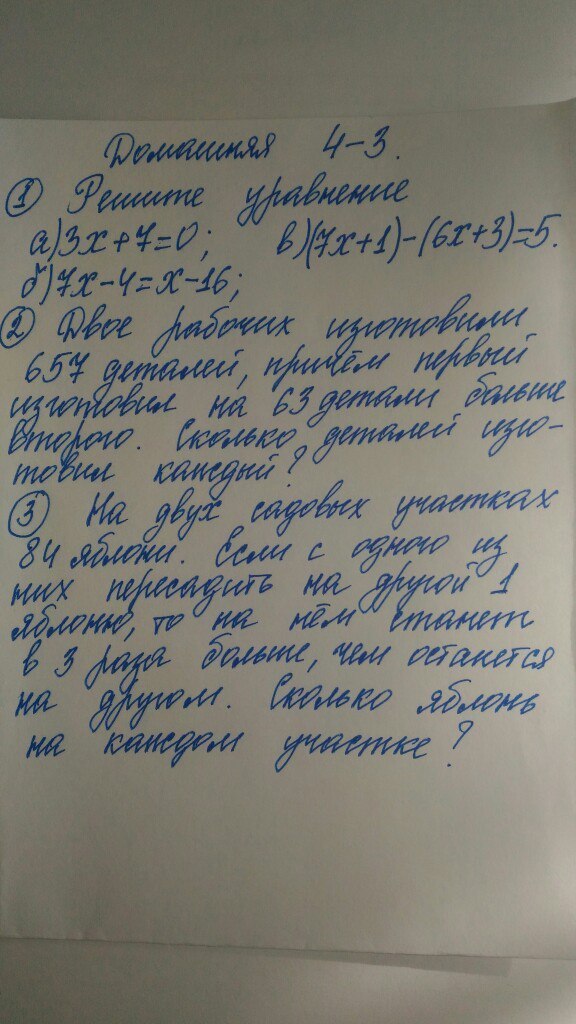 Домашняя 4-3.
① Решите уравнение
а) 3х+7=0; в) (7х+1)-(6х+3)=5.
б) 7х-4=х-16;
② Двое рабочих изготовили
657 деталей, причём первый
изготовил на 63 детали больше
второго. Сколько деталей изго-
товил каждый?
③ На двух садовых участках
84 яблони. Если с одного из
них пересадить на другой 1
яблоню, то на нём станет
в 3 раза больше, чем останется
на другом. Сколько яблонь
на каждом участке?